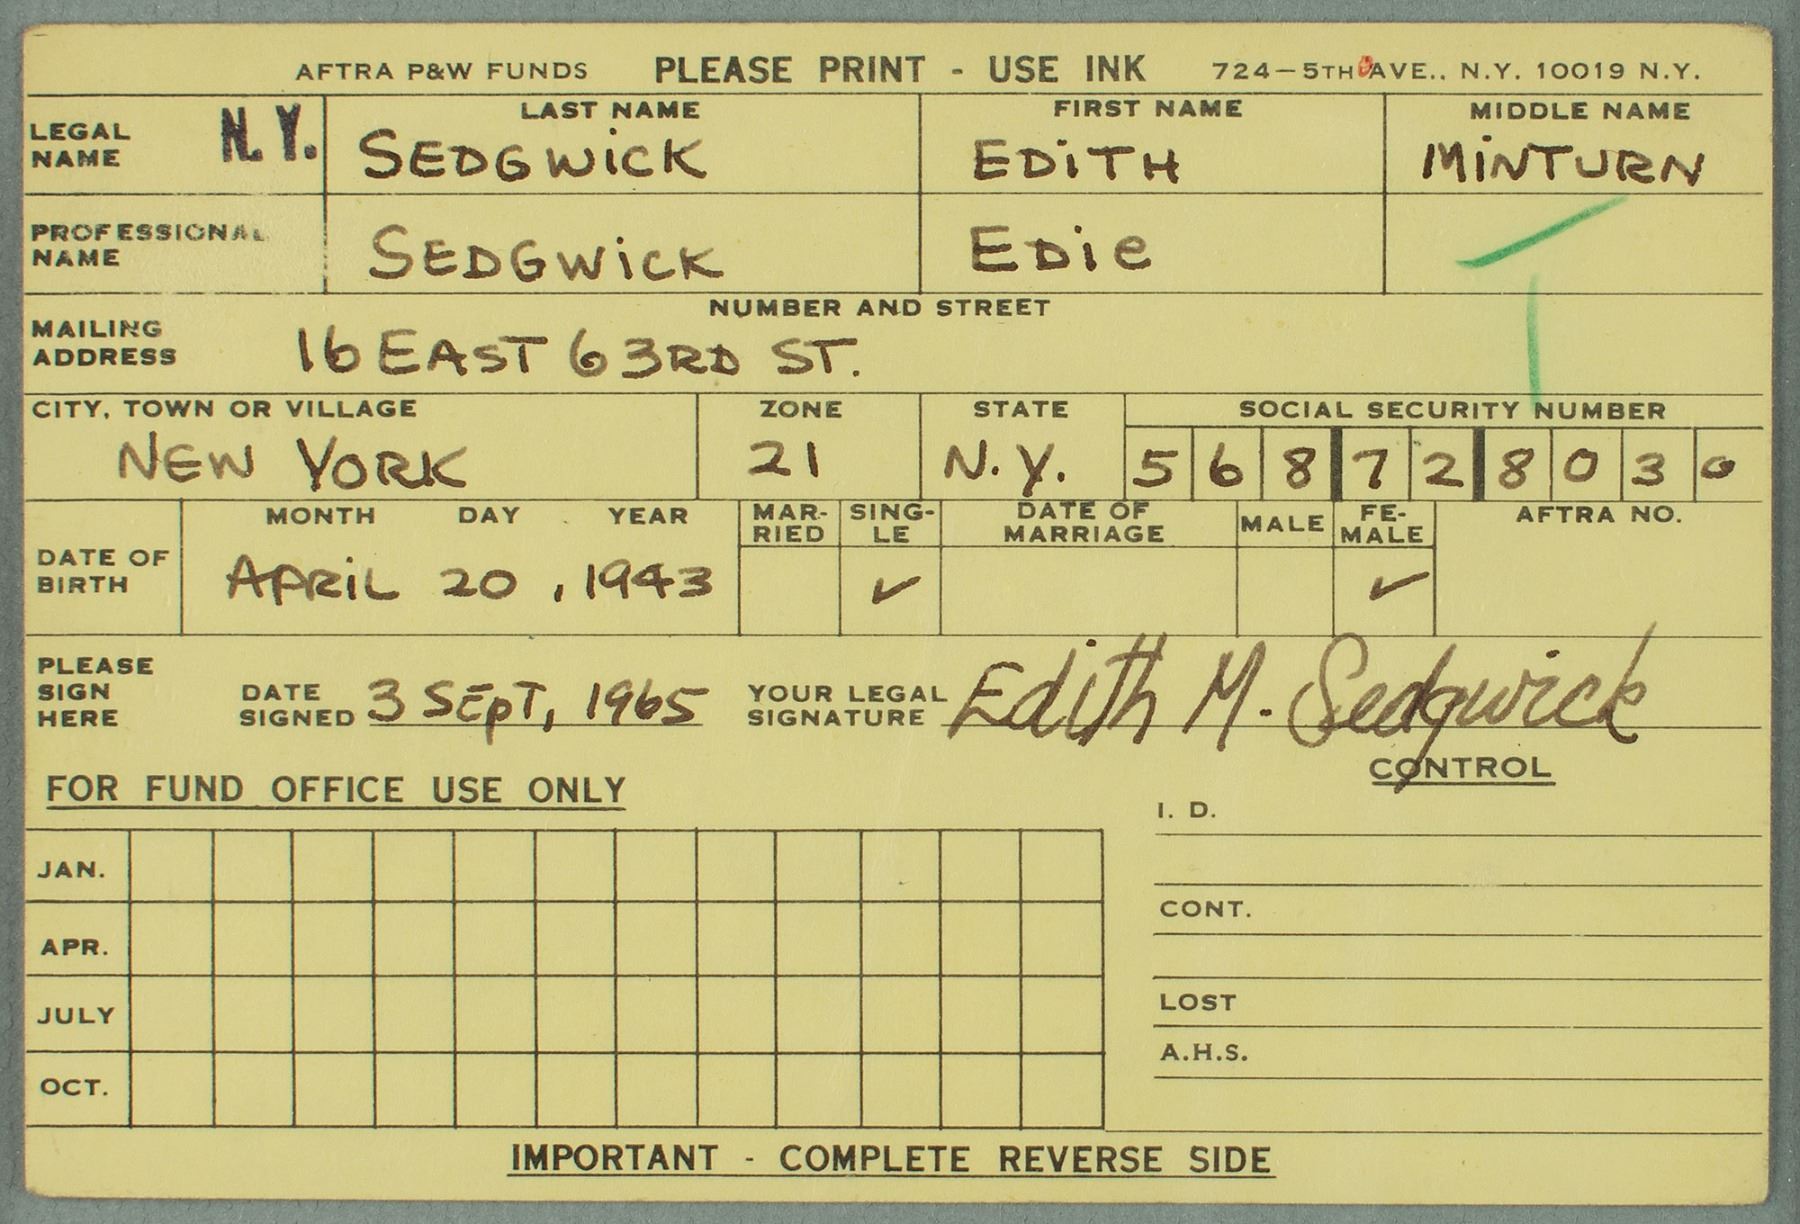 AFTRA P&W FUNDS PLEASE PRINT - USE INK 724-5TH AVE., N.Y. 10019 N.Y.
LEGAL NAME N.Y. LAST NAME SEDGWICK FIRST NAME EDITH MIDDLE NAME MINTURN
PROFESSIONAL NAME SEDGWICK EDIE
NUMBER AND STREET
MAILING ADDRESS 16 EAST 63RD ST.
CITY, TOWN OR VILLAGE ZONE STATE SOCIAL SECURITY NUMBER
NEW YORK 21 N.Y. 568 72 8030
MONTH DAY YEAR MAR-RIED SING-LE DATE OF MARRIAGE MALE FE-MALE AFTRA NO.
DATE OF BIRTH APRIL 20, 1943 ✓ ✓
PLEASE SIGN HERE DATE SIGNED 3 SEPT, 1965 YOUR LEGAL SIGNATURE Edith M. Sedgwick
CONTROL
FOR FUND OFFICE USE ONLY
I. D.
JAN.
CONT.
APR.
LOST
JULY
A.H.S.
OCT.
IMPORTANT - COMPLETE REVERSE SIDE